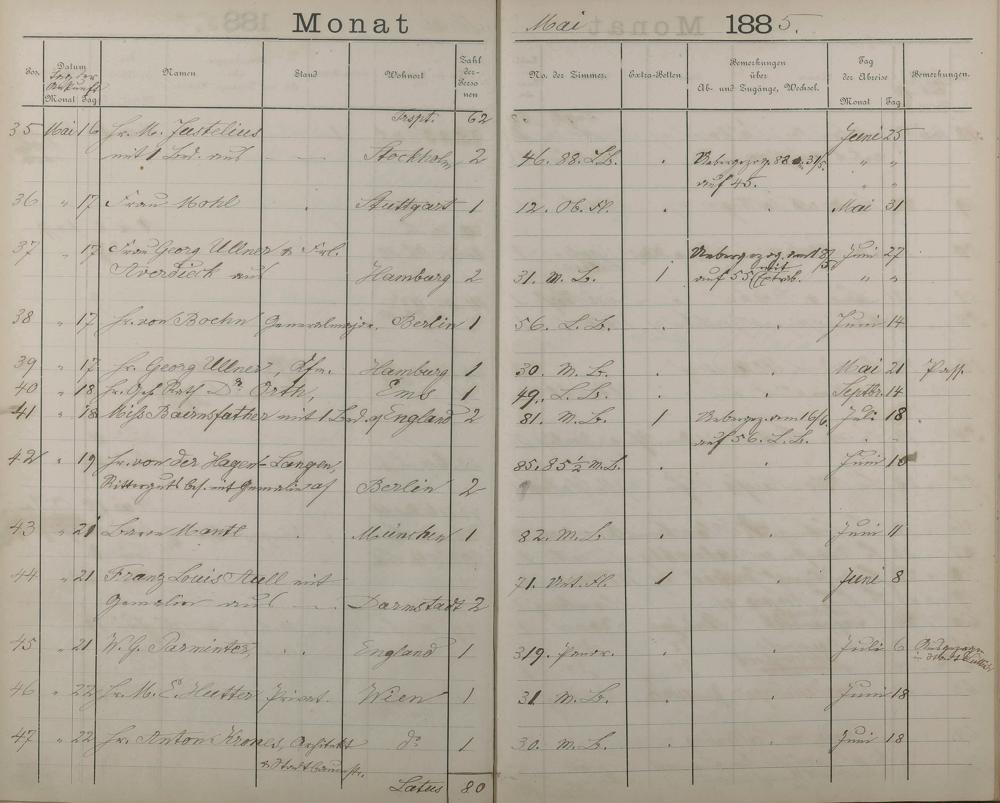 Monat
Mai 1885.
Pos.
Datum
Monat Tag
Namen
Stand
Wohnort
Zahl der Personen
No. der Zimmer.
Extra-Betten
Bemerkungen über Ab- und Zugänge, Wechsel.
Tag der Abreise
Monat Tag
Bemerkungen.
Trspt. 62
35 Mai 16 Hr. M. Justelius Juni 25
mit 1 Bed. aus Stockholm 2 46. 88. L.B. Uebergezog. 88 am 31/5. " "
auf 45. " "
36 " 17 Frau Mohl Stuttgart 1 12. Ob. Mai 31
37 " 17 Frau Georg Ullner & Frl. Juni 27
Averdieck aus Hamburg 2 31. M. B. 1 auf 55 mit Extrab. " "
38 " 17 Hr. von Boehn Generalmajor. Berlin 1 56. L. B. Juni 14
39 " 17 Hr. Georg Ullner, Kfm. Hamburg 1 30. M. B. Mai 21 Pass.
40 " 18 Hr. Geh. Rath Dr. Orth, Ems 1 49. L. B. Septbr. 14
41 " 18 Miss Bairnsfather mit 1 Bed. as England 2 81. M. B. 1 Uebergez. am 16/6. Juli 18
auf 56. L. B.
42 " 19 Hr. von der Hagen-Langen, 85. 85½ M.B. Juni
Ritterguts bes. mit Gemalin as Berlin 2
43 " 21 Baron Mantl München 1 82. M. B. Juni 11
44 " 21 Franz Louis mit 71. 1 Juni 8
Gemalin aus Darmstadt 2
45 " 21 W. G. Parminter, England 1 319. Juli 6
46 " 22 Hr. M. E. Hutter Privat. Wien 1 31. M. B. Juni 18
47 " 22 Hr. Anton Krones, Architekt do 1 30. M. B. Juni 18
& Stadtbaumstr.
Latus 80